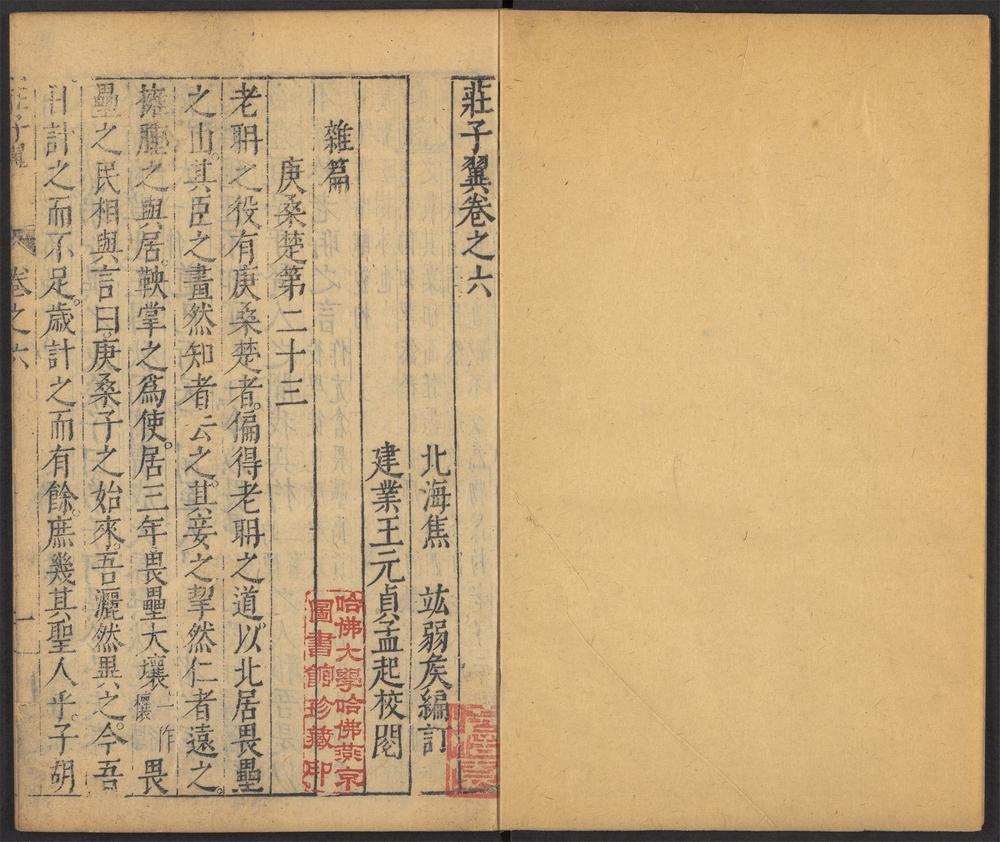 莊子翼卷之六
北海焦 竑弱侯編訂
建業王元貞孟起校閱
雜篇
庚桑楚第二十三
老聃之役有庚桑楚者。偏得老聃之道。以北居畏壘
之山。其臣之畫然知者云之。其妾之挈然仁者遠之。
擁腫之與居。鞅掌之爲使。居三年。畏壘大壤一作穰畏
壘之民相與言曰。庚桑子之始來。吾灑然異之。今吾
日計之而不足。歲計之而有餘。庶幾其聖人乎。子胡
莊子翼 卷之六 一
哈佛大學哈佛燕京
圖書館珍藏印